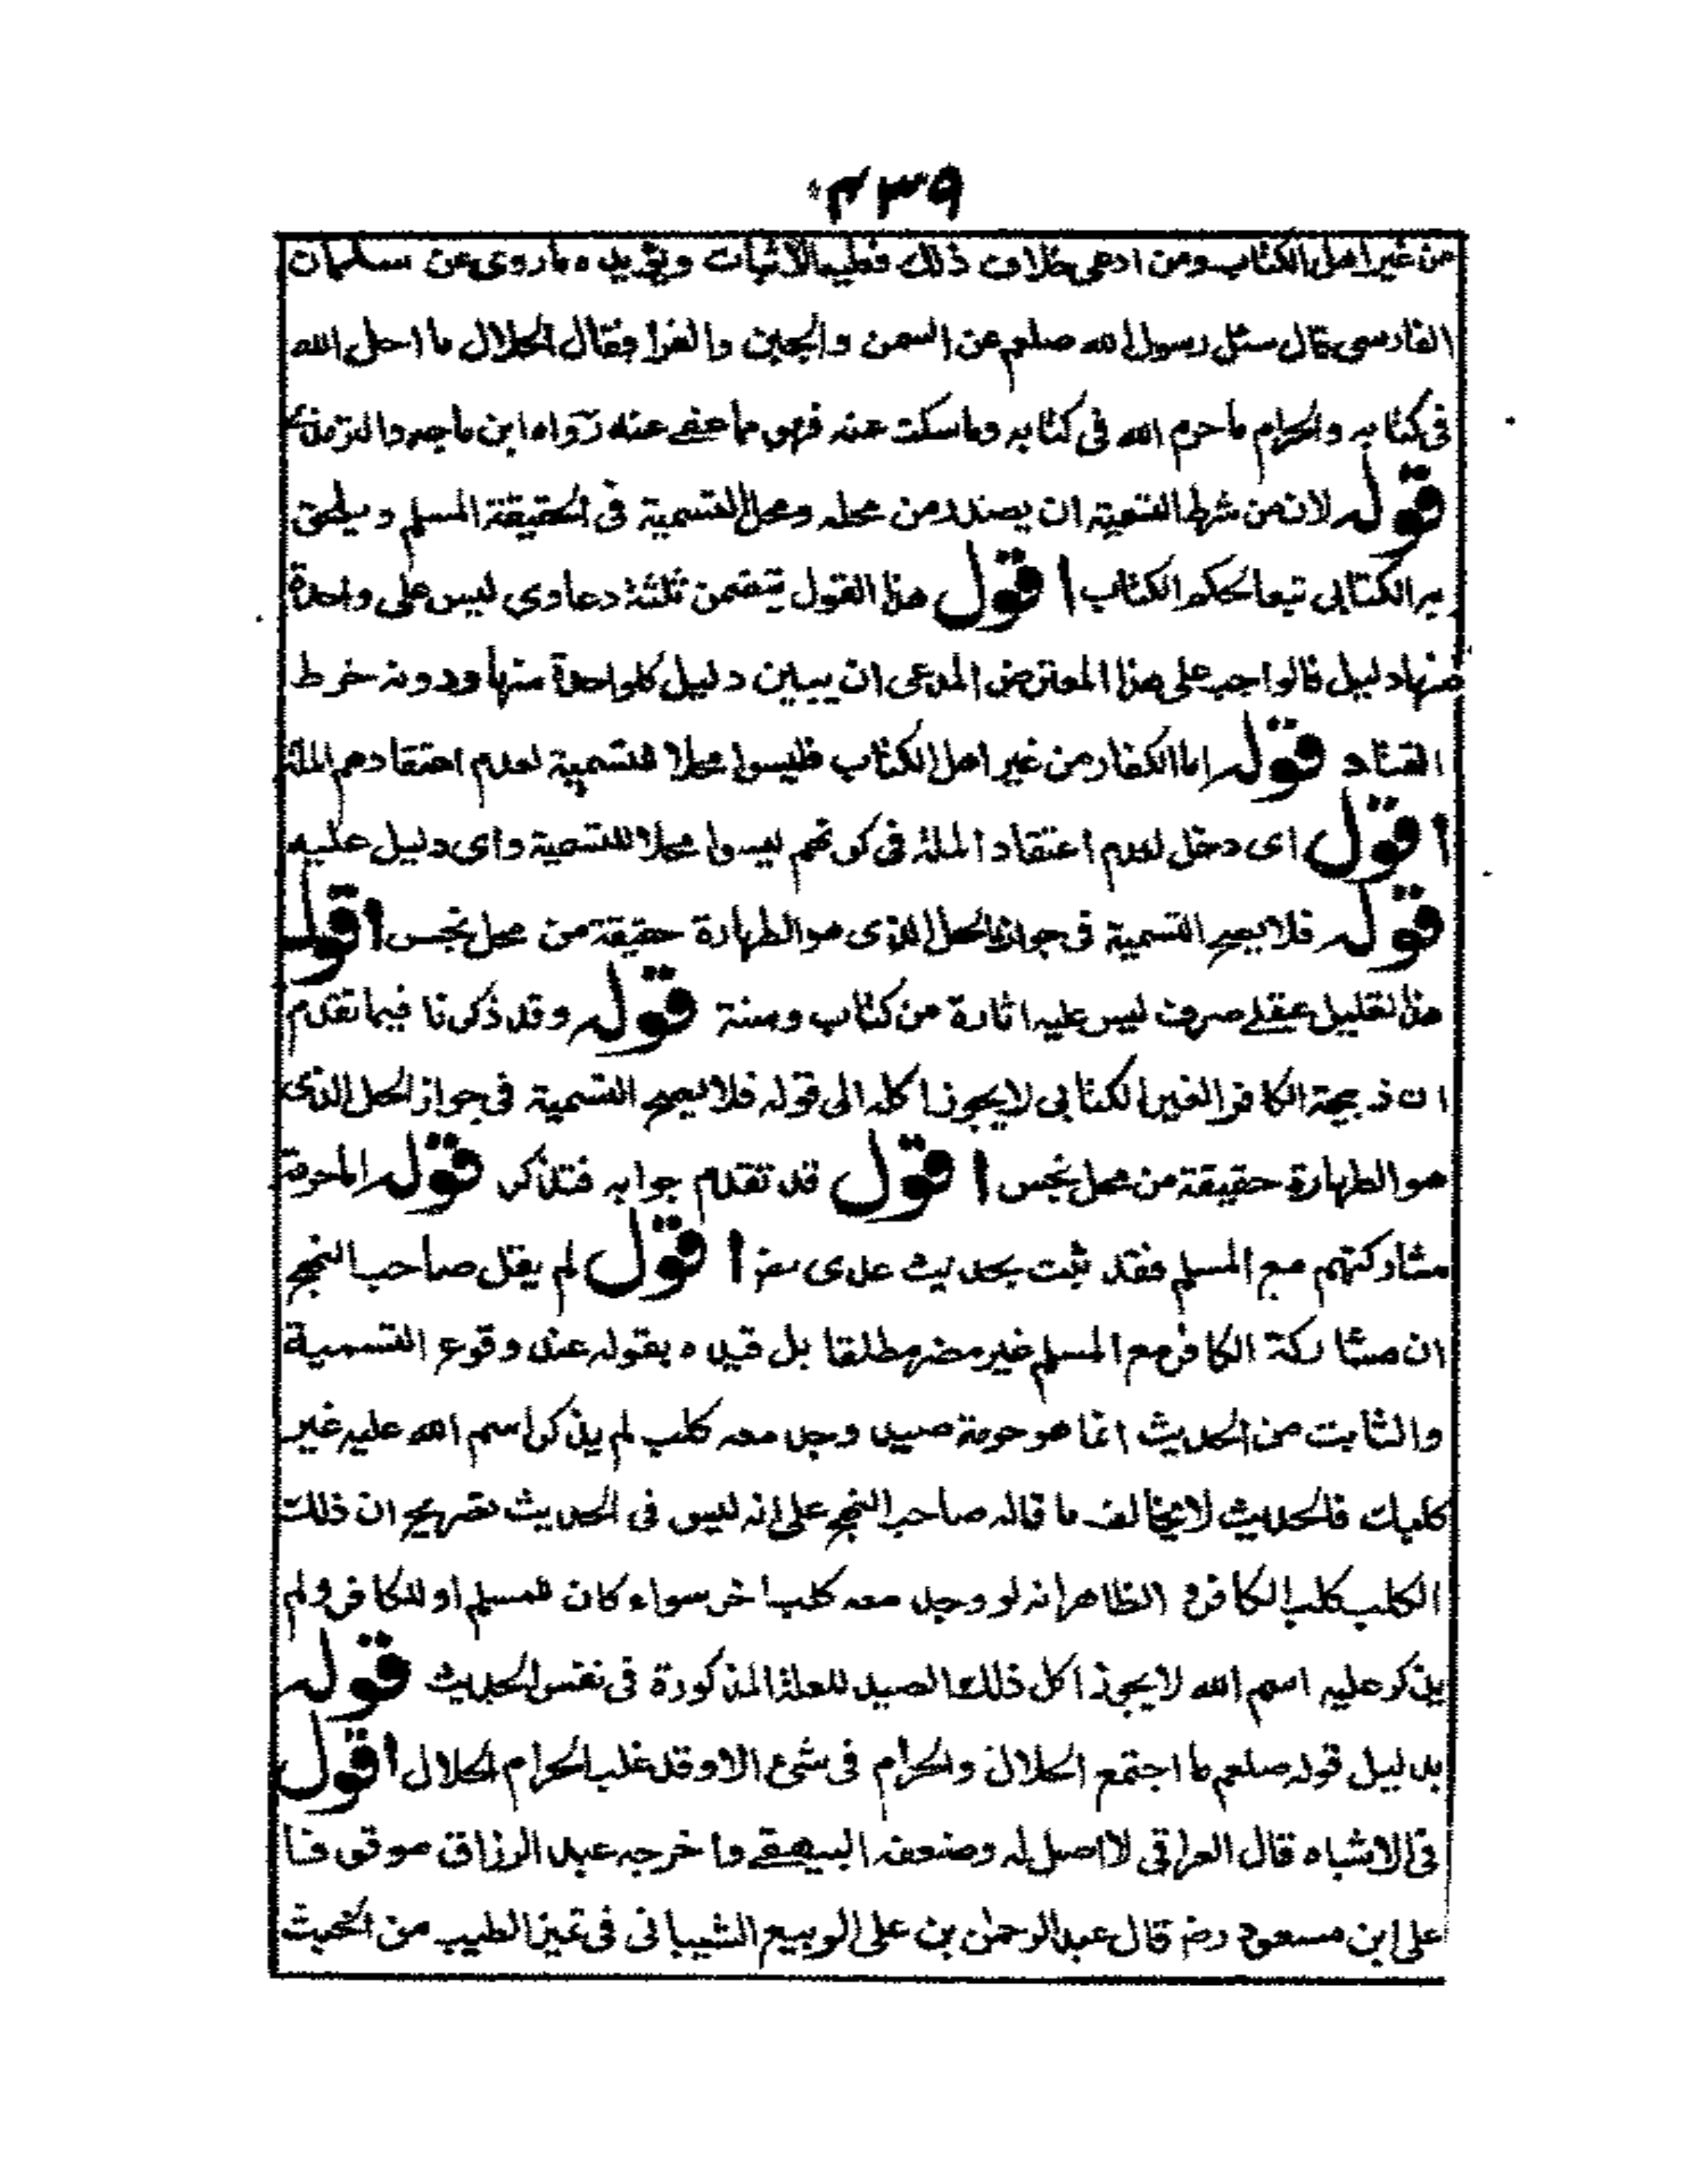 ٤٣٩
من غير اهل الكتاب ومن ادعى خلاف ذلك فعليه الاثبات ويؤيده ماروى عن سلمان
الفارسى قال سئل رسول الله صلعم عن السمن والجبن والفرا فقال الحلال ما احل الله
فى كتابه والحرام ماحرم الله فى كتابه وماسكت عنه فهو مما عفى عنه رواه ابن ماجه والترمذى
قوله لان من شرط التسمية ان يصدر من محله ومحل التسمية فى الحقيقة المسلم ويلحق
به الكتابى تبعا لحكم الكتاب اقول هذا القول يتضمن ثلثة دعاوى ليس على واحدة
منها دليل فالواجب على هذا المعترض المدعى ان يبين دليل كلواحدة منها ودونه خرط
القتاد قوله اما الكفار من غير اهل الكتاب فليسوا محلا للتسمية لعدم اعتقادهم الملة
اقول اى دخل لعدم اعتقاد الملة فى كونهم ليسوا محلا للتسمية واى دليل عليه
قوله فلا يصح التسمية فى جواز الحل الذى هو الطهارة حقيقة من محل نجس اقول
هذا تعليل عقلى صرف ليس عليه اثارة من كتاب وسنة قوله وقد ذكرنا فيما تقدم
ان ذبيحة الكافر الغير الكتابى لايجوز اكله الى قوله فلا يصح التسمية فى جواز الحل الذى
هو الطهارة حقيقة من محل نجس اقول قد تقدم جوابه فتذكر قوله اما حرمة
مشاركتهم مع المسلم فقد ثبت بحديث عدى الخ اقول لم يقل صاحب النهج
ان مشاركة الكافر مع المسلم غير مضر مطلقا بل قيده بقوله عند وقوع التسمية
والثابت من الحديث انما هو حرمة صيد وجد معه كلب لم يذكر اسم الله عليه غير
كلبك فالحديث لايخالف ما قاله صاحب النهج على انه ليس فى الحديث تصريح ان ذلك
الكلب كلب الكافر و الظاهر انه لو وجد معه كلب اخر سواء كان للمسلم او للكافر ولم
يذكر عليه اسم الله لايجوز اكل ذلك الصيد للعلة المذكورة فى نفس الحديث قوله
بدليل قوله صلعم ما اجتمع الحلال والحرام فى شئ الا وقد غلب الحرام الحلال اقول
فى الاشباه قال العراقى لا اصل له وضعفه البيهقى واخرجه عبد الرزاق موقوفا
على ابن مسعود رضه قال عبد الرحمن بن على الربيع الشيبانى فى تميز الطيب من الخبيث